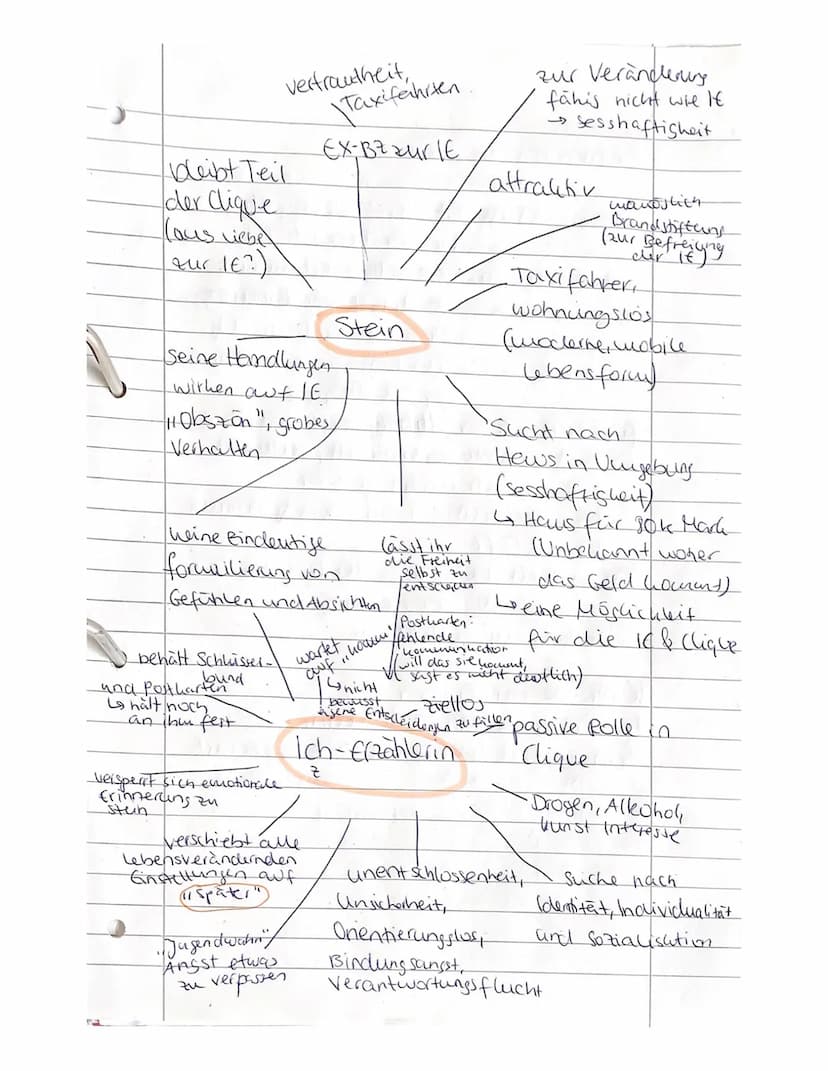 vertrautheit,
Taxifahrten
zur Veränderung
fähig nicht wie IE
→ sesshaftigkeit
EX-BZ zur IE
bleibt Teil
der Clique
(aus Liebe
zur IE?)
attraktiv
womöglich
Brandstiftung
(zur Befreiung
der IE)
Taxifahrer,
wohnungslos
(moderne, mobile
Lebensform)
Stein
seine Handlungen
wirken auf IE
"Obszön", grobes
Verhalten
Sucht nach
Haus in Umgebung
(sesshaftigkeit)
↳ Haus für 80k Mark
(Unbekannt woher
das Geld kommt)
↳ eine Möglichkeit
für die IE & Clique
keine Eindeutige
formulierung von
Gefühlen und Absichten
lässt ihr
die Freiheit
selbst zu
entscheiden
Postkarten:
fehlende
kommunikation
(will das sie kommt,
sagt es nicht deutlich)
wartet
auf "komm"
↳ nicht
bewusst
eigene Entscheidungen zu fällen
behält Schlüssel-
bund
und Postkarten
↳ hält noch
an ihm fest
ziellos
passive Rolle in
Clique
Ich-Erzählerin
z
versperrt sich emotionale
Erinnerung zu
Stein
Drogen, Alkohol,
kunst Interesse
verschiebt alle
Lebensverändernden
Einstellungen auf
"später"
"Jugendwahn"
Angst etwas
zu verpassen
unentschlossenheit,
Unsicherheit,
Orientierungslos,
Bindungsangst,
Verantwortungsflucht
Suche nach
Identität, Individualität
und Sozialisation